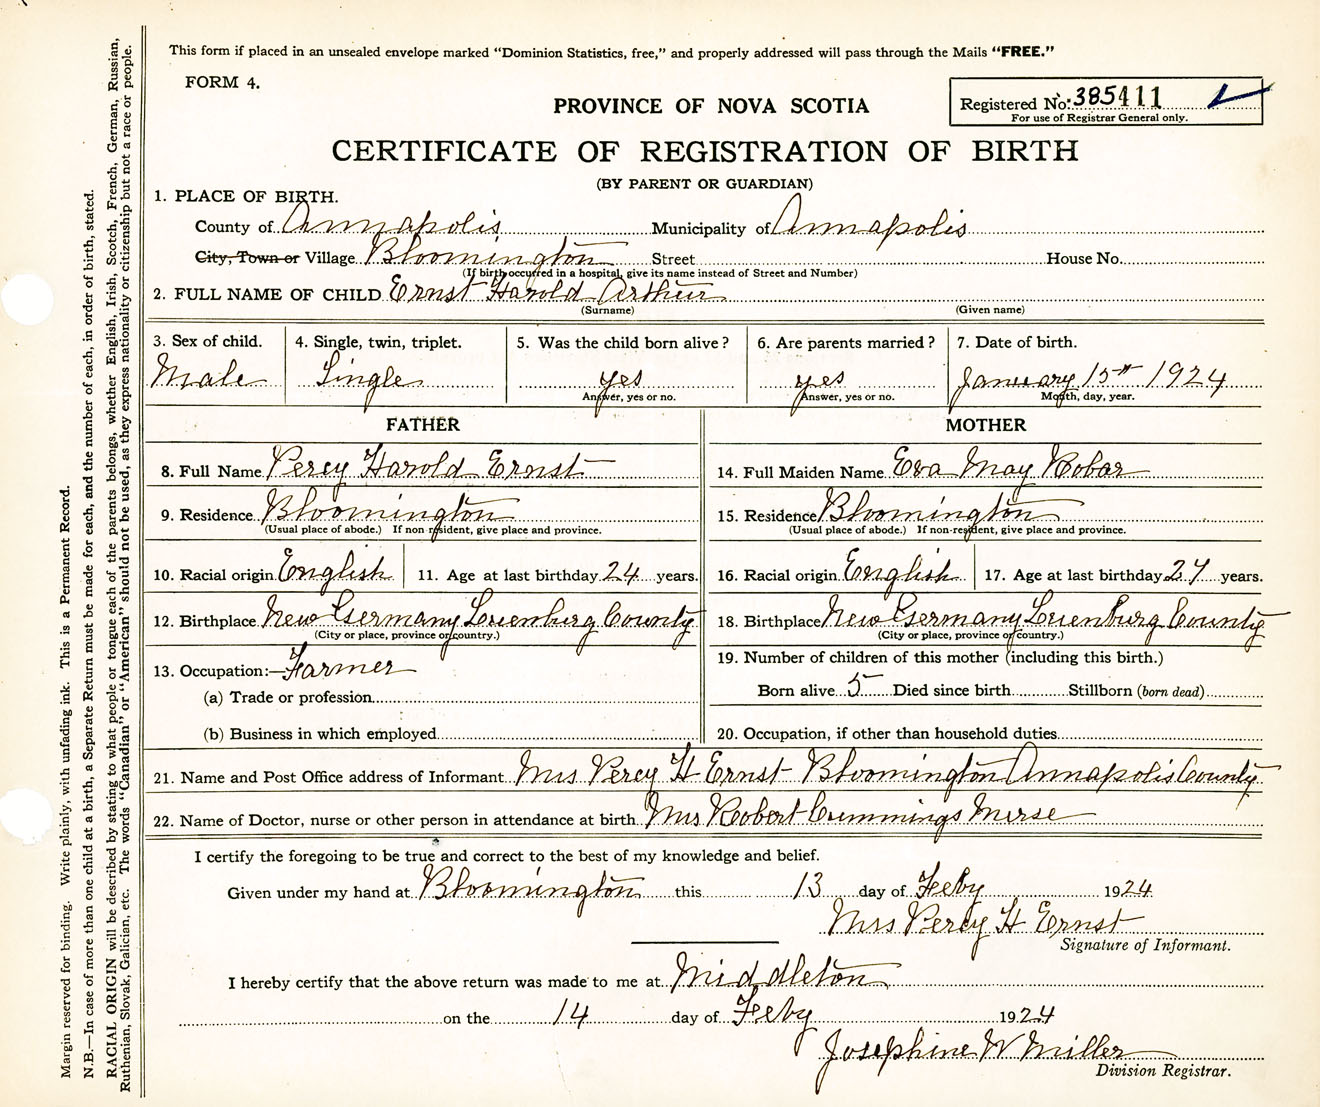 This form if placed in an unsealed envelope marked "Dominion Statistics, free," and properly addressed will pass through the Mails "FREE."
FORM 4.
Registered No. 385411
For use of Registrar General only.
PROVINCE OF NOVA SCOTIA
CERTIFICATE OF REGISTRATION OF BIRTH
(BY PARENT OR GUARDIAN)
1. PLACE OF BIRTH.
County of Annapolis Municipality of Annapolis
City, Town or Village Bloomington Street House No.
(If birth occurred in a hospital, give its name instead of Street and Number)
2. FULL NAME OF CHILD Ernst Harold Arthur
(Surname) (Given name)
3. Sex of child. 4. Single, twin, triplet. 5. Was the child born alive? 6. Are parents married? 7. Date of birth.
Male Single yes yes January 15th 1924
Answer, yes or no. Answer, yes or no. Month, day, year.
FATHER MOTHER
8. Full Name Percy Harold Ernst 14. Full Maiden Name Eva May Robar
9. Residence Bloomington 15. Residence Bloomington
(Usual place of abode.) If non-resident, give place and province. (Usual place of abode.) If non-resident, give place and province.
10. Racial origin English 11. Age at last birthday 24 years. 16. Racial origin English 17. Age at last birthday 27 years.
12. Birthplace New Germany Luenburg County 18. Birthplace New Germany Luenburg County
(City or place, province or country.) (City or place, province or country.)
13. Occupation:— Farmer 19. Number of children of this mother (including this birth.)
(a) Trade or profession Born alive 5 Died since birth Stillborn (born dead)
(b) Business in which employed 20. Occupation, if other than household duties
21. Name and Post Office address of Informant Mrs Percy H Ernst Bloomington Annapolis County
22. Name of Doctor, nurse or other person in attendance at birth Mrs Robert Cummings Nurse
I certify the foregoing to be true and correct to the best of my knowledge and belief.
Given under my hand at Bloomington this 13 day of Feby 1924
Mrs Percy H Ernst
Signature of Informant.
I hereby certify that the above return was made to me at Middleton
on the 14 day of Feby 1924
Josephine W Miller
Division Registrar.
Margin reserved for binding. Write plainly, with unfading ink. This is a Permanent Record.
N.B.—In case of more than one child at a birth, a Separate Return must be made for each, and the number of each, in order of birth, stated.
RACIAL ORIGIN will be described by stating to what people or tongue each of the parents belongs, whether English, Irish, Scotch, French, German, Russian,
Ruthenian, Slovak, Galician, etc. The words "Canadian" or "American" should not be used, as they express nationality or citizenship but not a race or people.